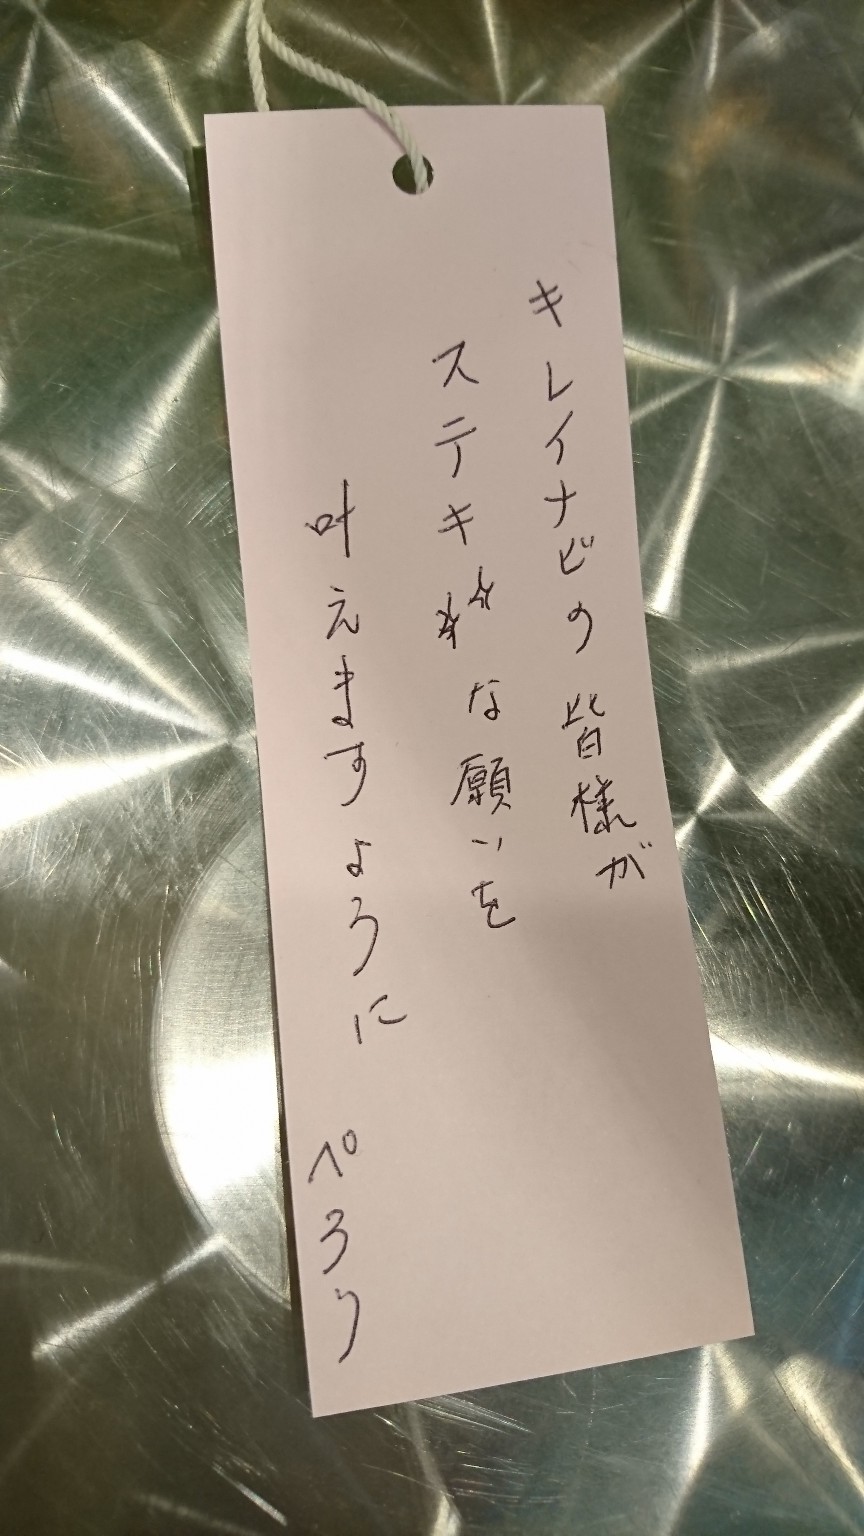 キレイナビの皆様が
ステキ☆☆な願いを
叶えますように
ぺろり